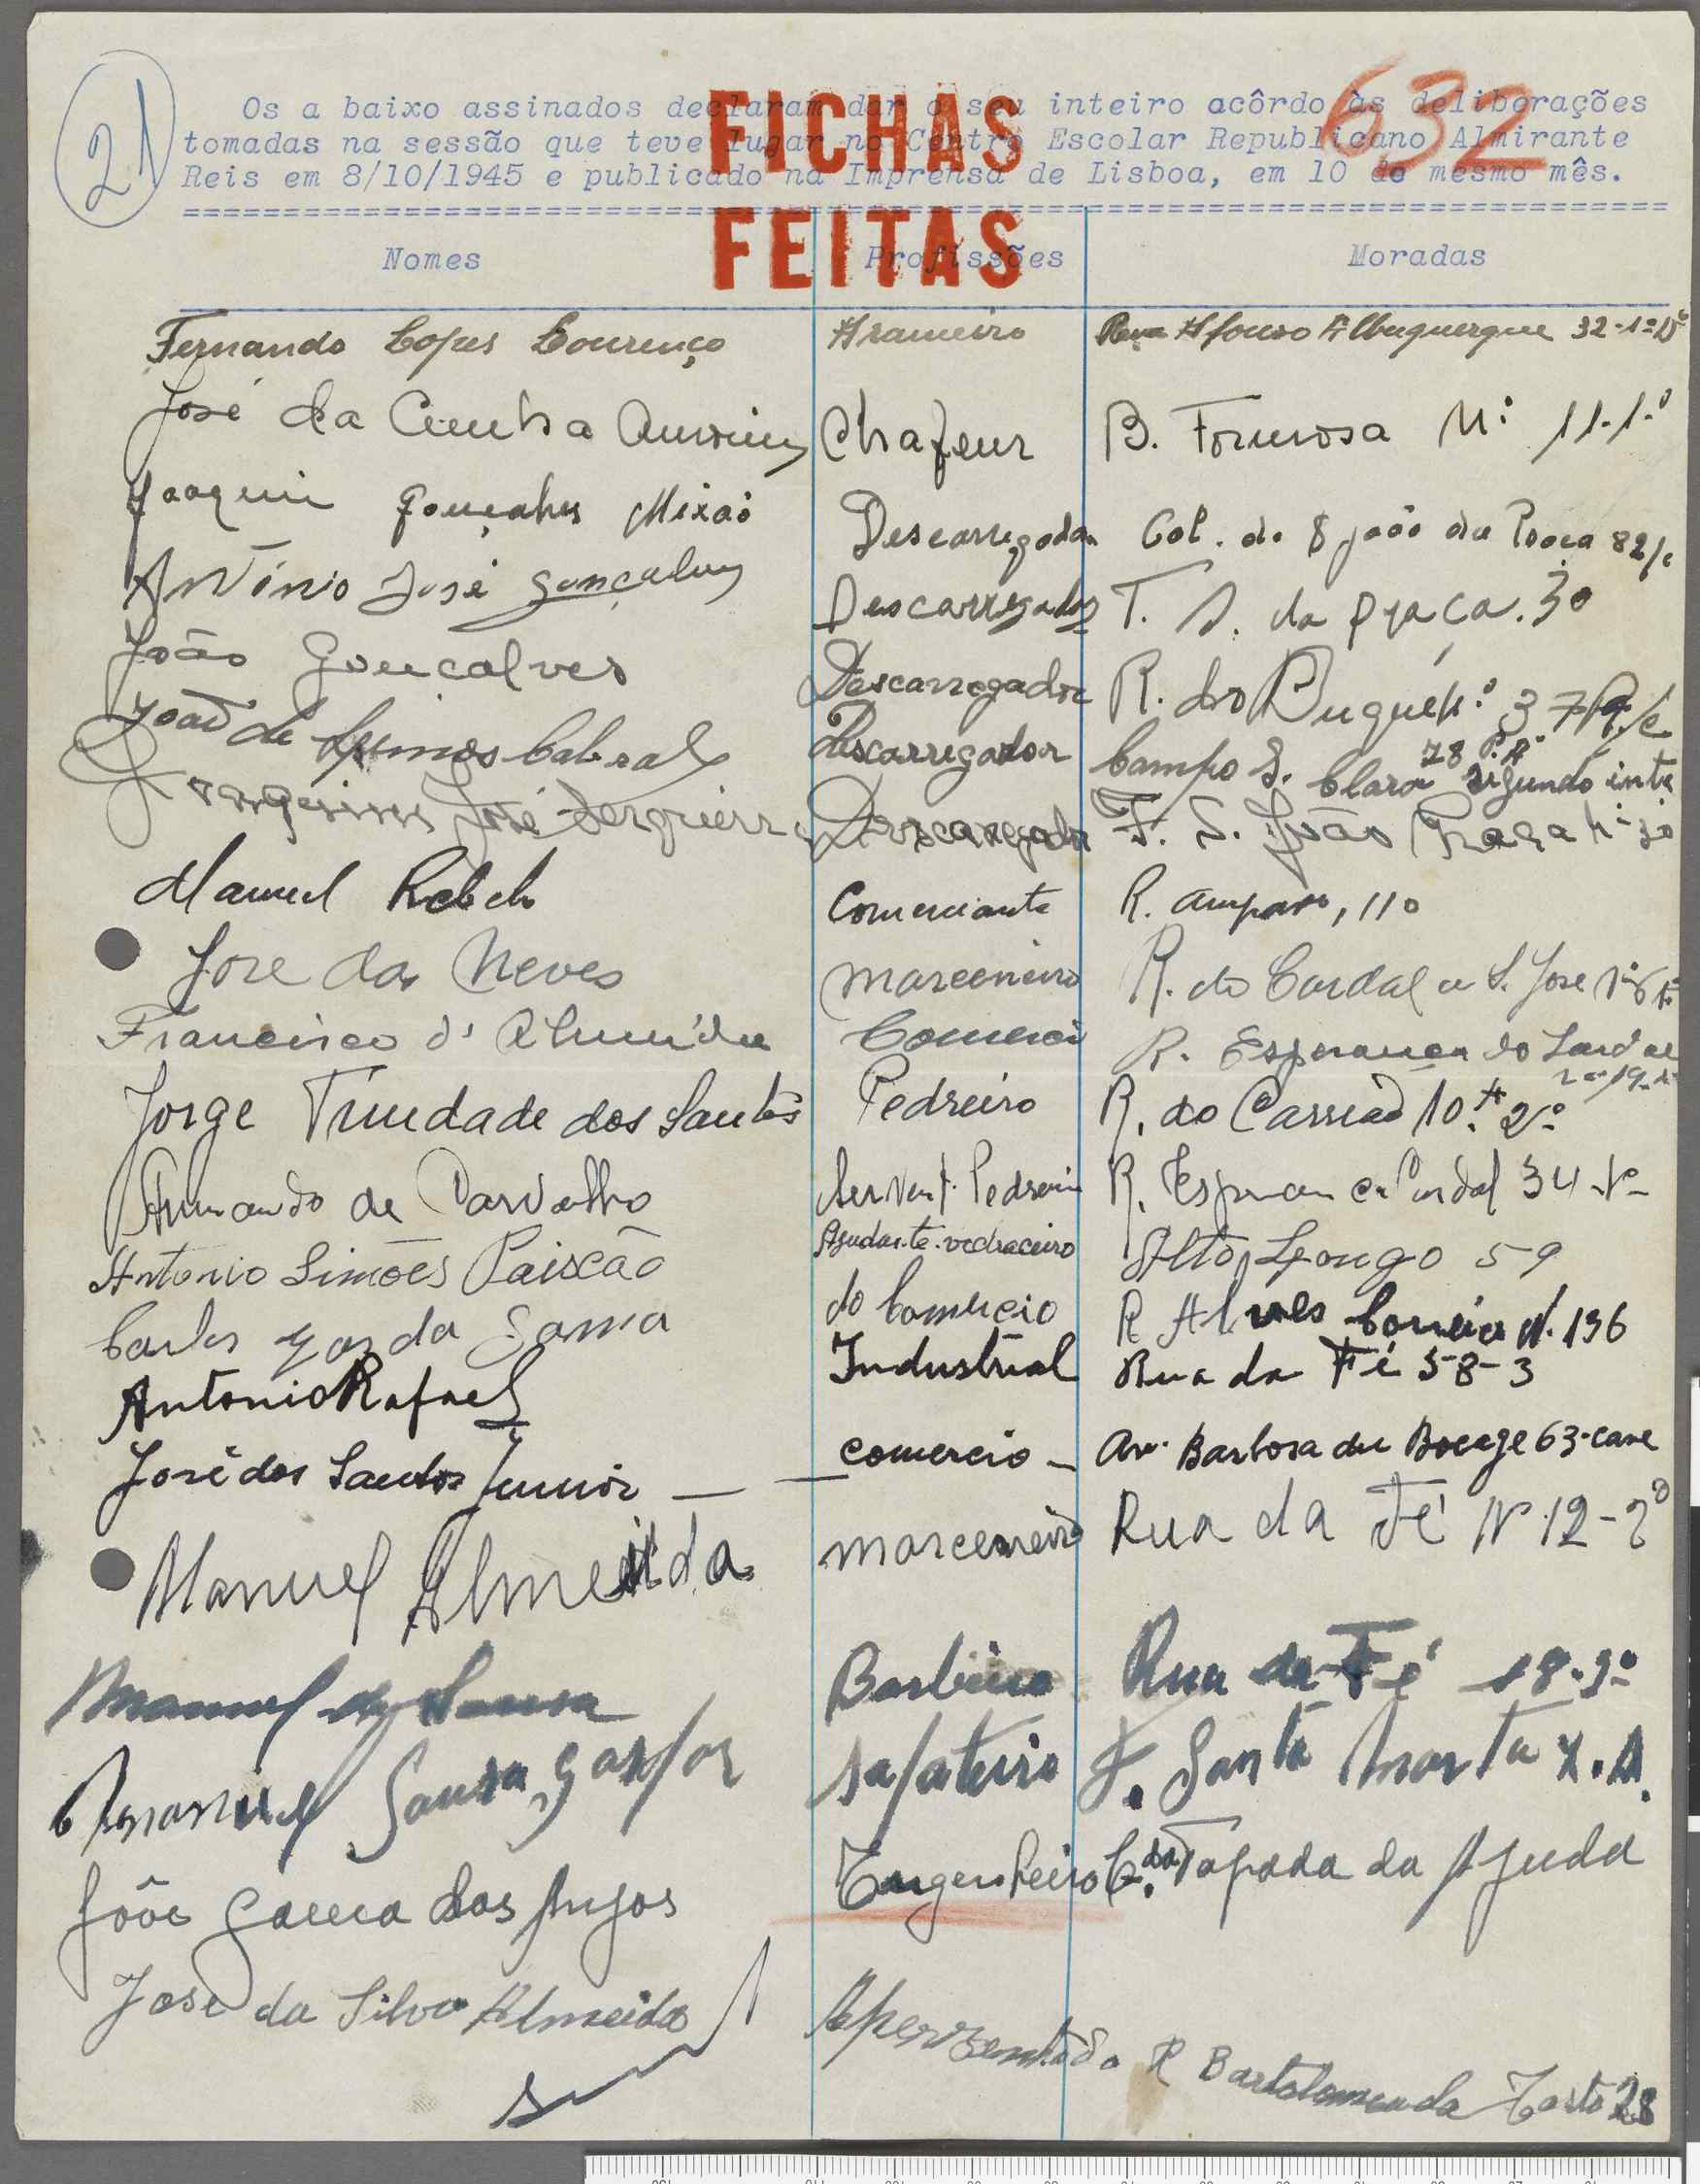 21
632
FICHAS
FEITAS
Os a baixo assinados declaram dar o seu inteiro acôrdo às deliberações
tomadas na sessão que teve lugar no Centro Escolar Republicano Almirante
Reis em 8/10/1945 e publicado na Imprensa de Lisboa, em 10 do mesmo mês.
Nomes Profissões Moradas
Fernando Lopes Lourenço Arameiro Rua Afonso Albuquerque 32-1º Dº
José da Cunha Chafeur B. Formosa Nº 11-1º
Joaquim Gonçalves Mixão Descarregador Col. de S João da Praça 82
António José Gonçalves Descarregador T. S. da Praça. 30
João Gonçalves Descarregador R. do 37 R/c
João de Lemos Cabral Descarregador Campo S. Clara 78 segundo
José Descarregador T. S. João Praça
Manuel Rebelo Comerciante R. Amparo, 110
Jose das Neves marceneiro R. do Cardal a S. Jose
Francisco d'Almeida Comercio R. Esperança do Cardal
Jorge Trindade dos Santos Pedreiro R. do Carrião 10 A 2º
Armando de Carvalho Servent. Pedreiro R. Cardal 34
Antonio Simões Paixão Ajudante vedraceiro Alto Longo 59
Carlos Vaz da Gama do Comercio R Alves Correia N. 196
Antonio Rafael Industrial Rua da Fé 58-3
José dos Santos Junior — comercio — Av. Barbosa du Bocage 63-cave
Manuel Almeida marceneiro Rua da Fé Nº 12-2º
Manuel de Sousa Barbeiro Rua da Fé 18-3º
Manuel Sousa Gaspar Sapateiro T. Santa Marta
João Garcia dos Anjos Engenheiro C. da Tapada da Ajuda
José da Silva Almeida Apersentado R Bartolomeu da Costa 28